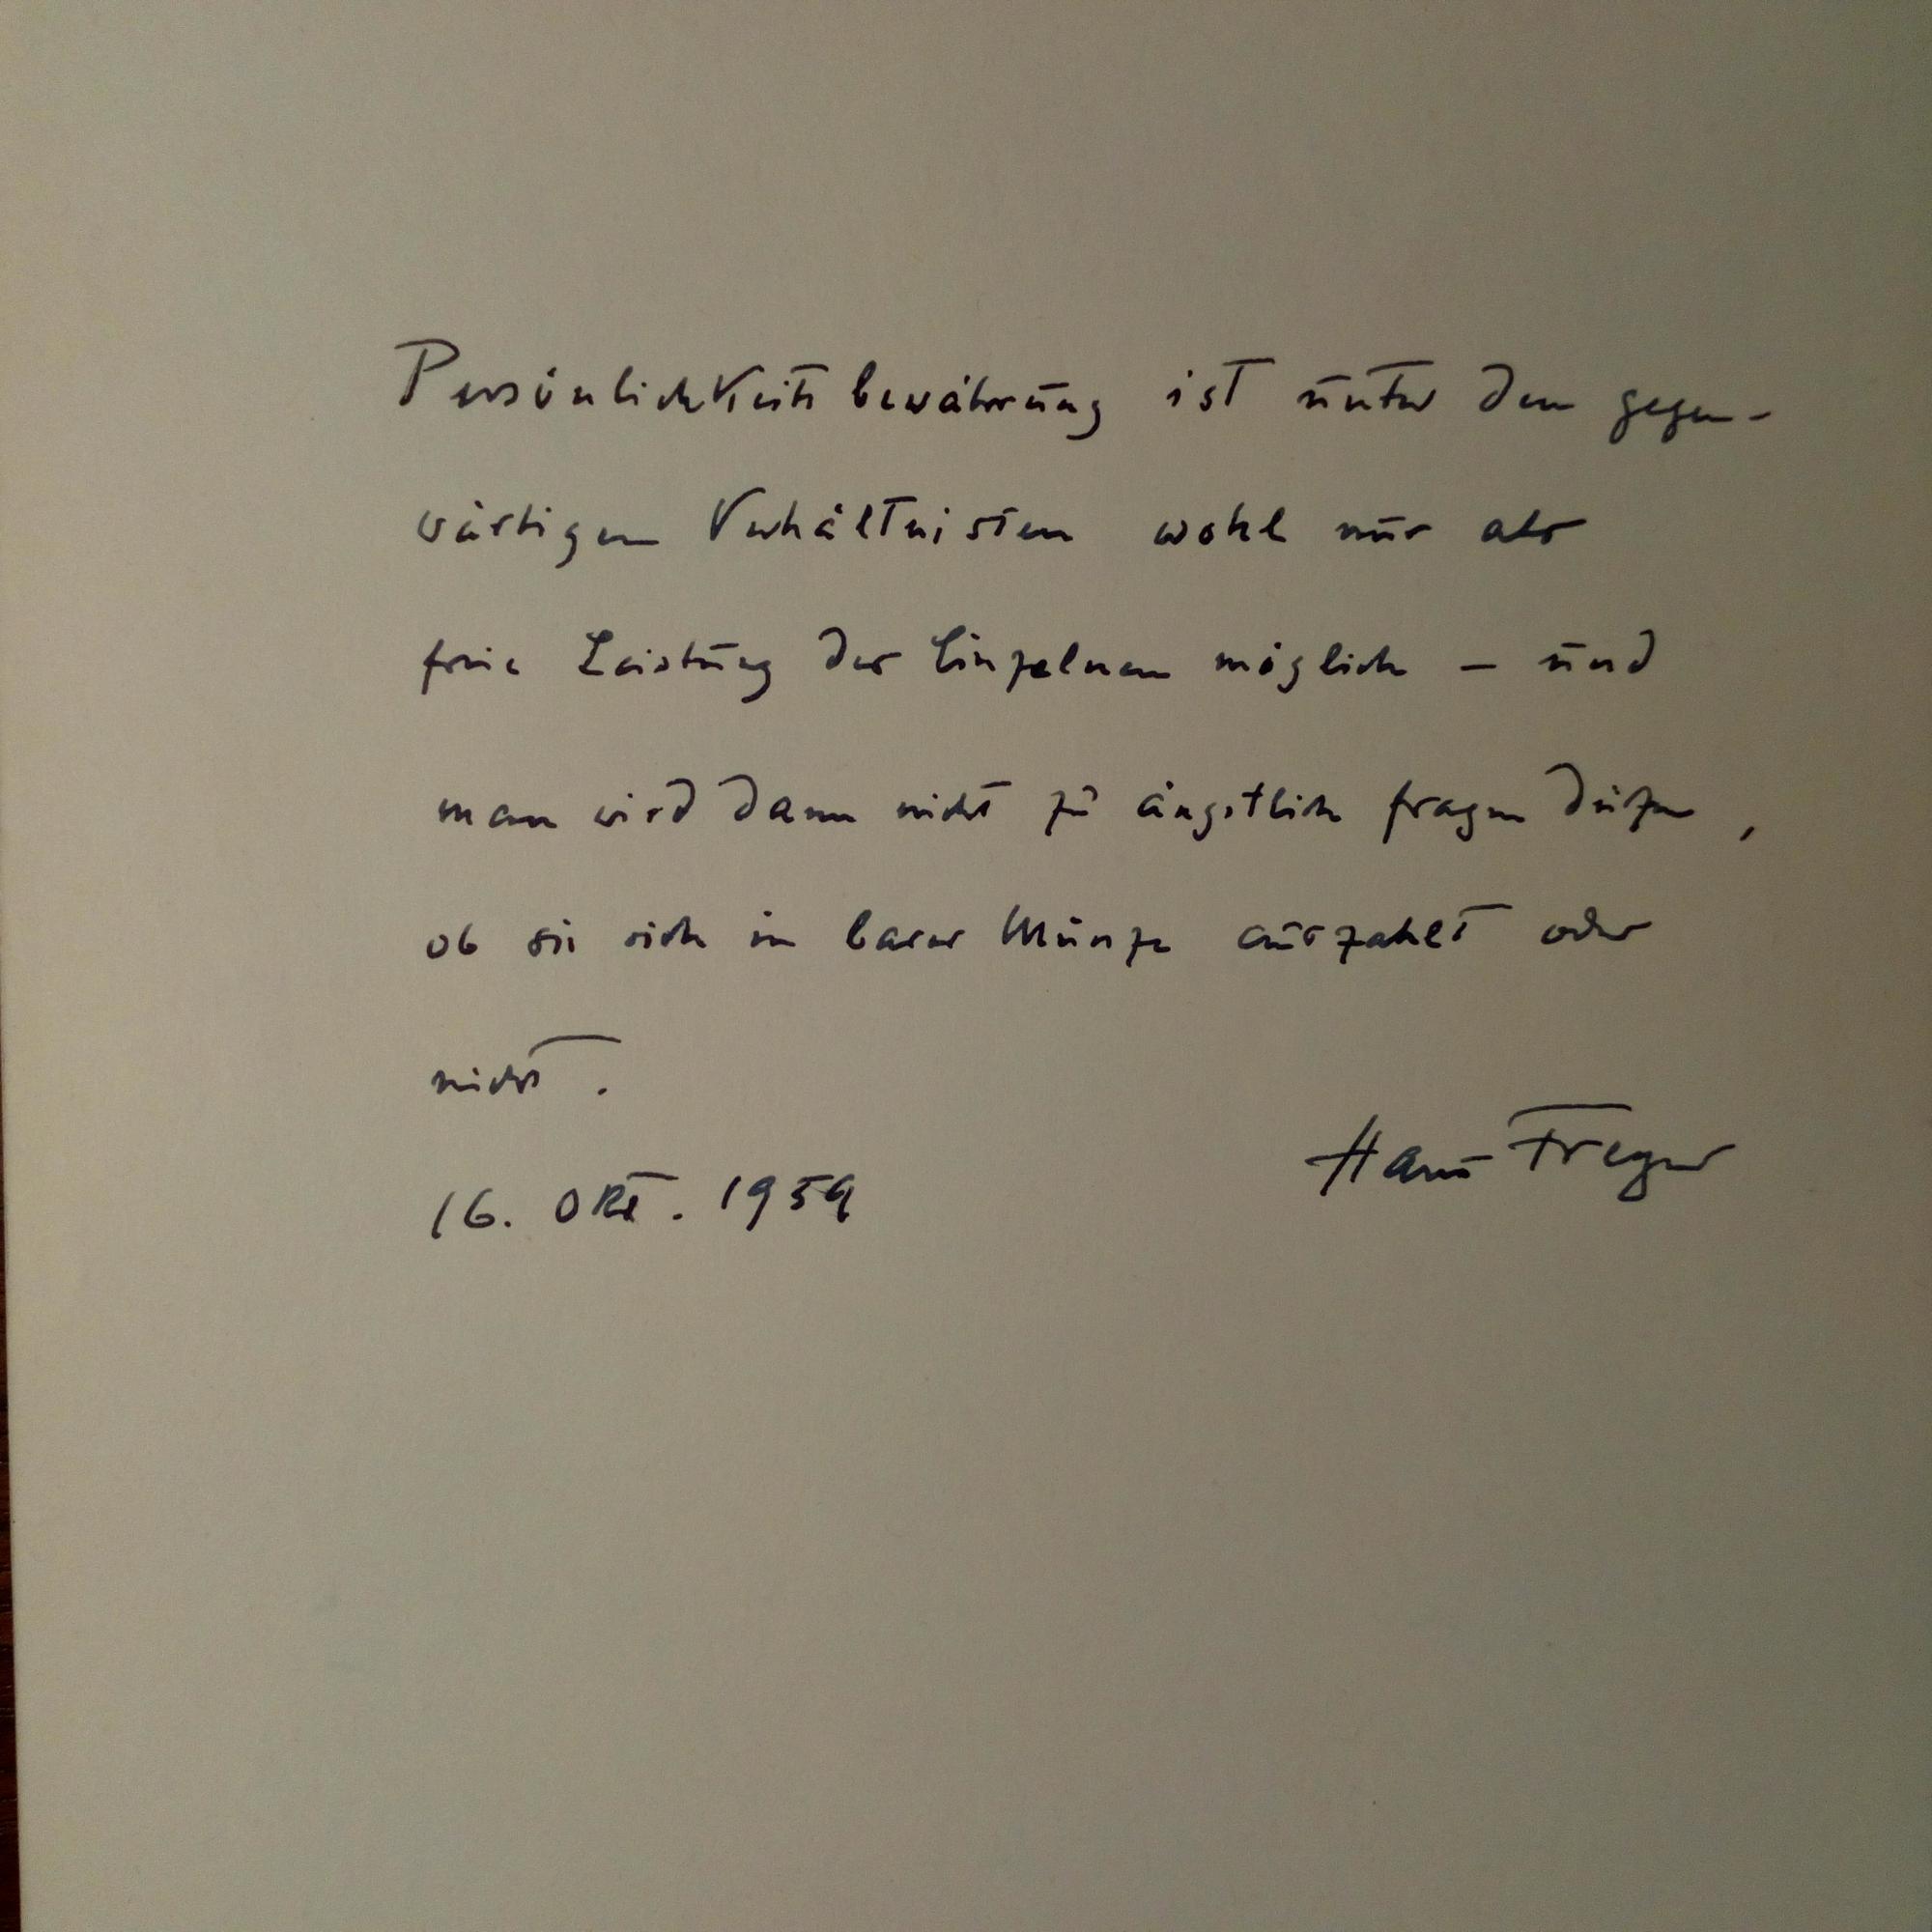 Persönlichkeitsbewährung ist unter den gegen-
wärtigen Verhältnissen wohl nur als
freie Leistung des Einzelnen möglich – und
man wird dann nicht zu ängstlich fragen dürfen,
ob sie sich in barer Münze auszahlt oder
nicht.
Hans Freyer
16. Okt. 1959